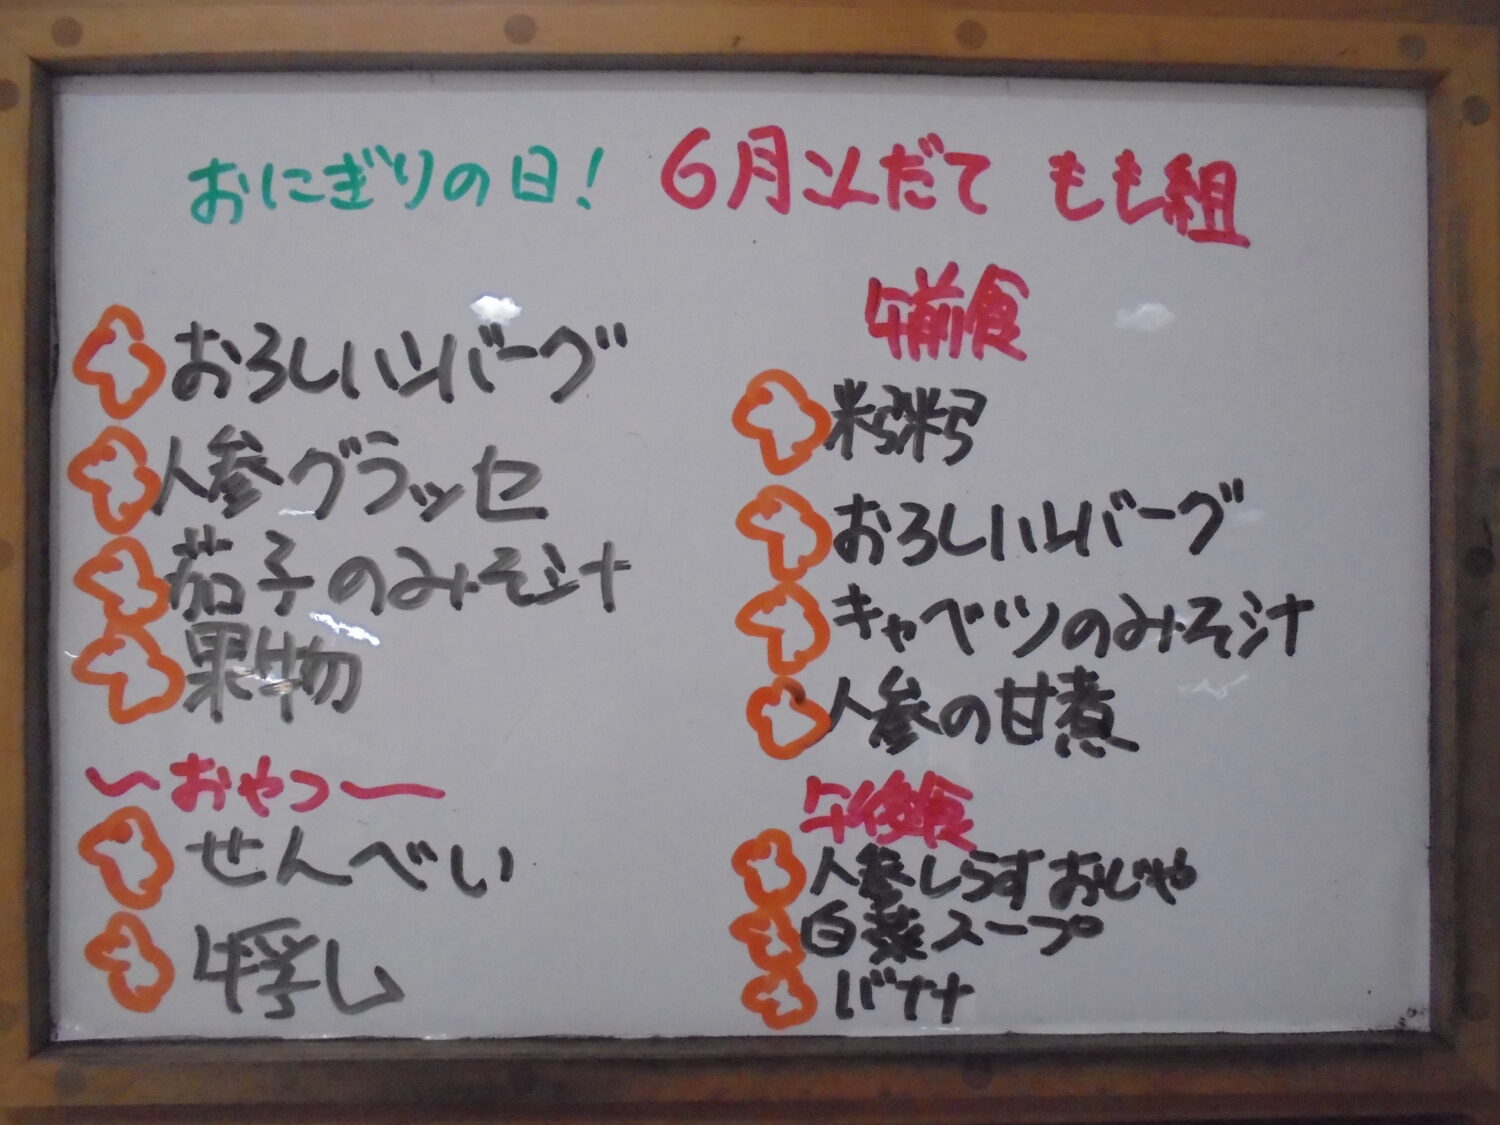 おにぎりの日! 6月こんだて もも組
おろしハンバーグ
人参グラッセ
茄子のみそ汁
果物
〜おやつ〜
せんべい
牛乳
午前食
粥
おろしハンバーグ
キャベツのみそ汁
人参の甘煮
午後食
人参しらすおじや
白菜スープ
バナナ